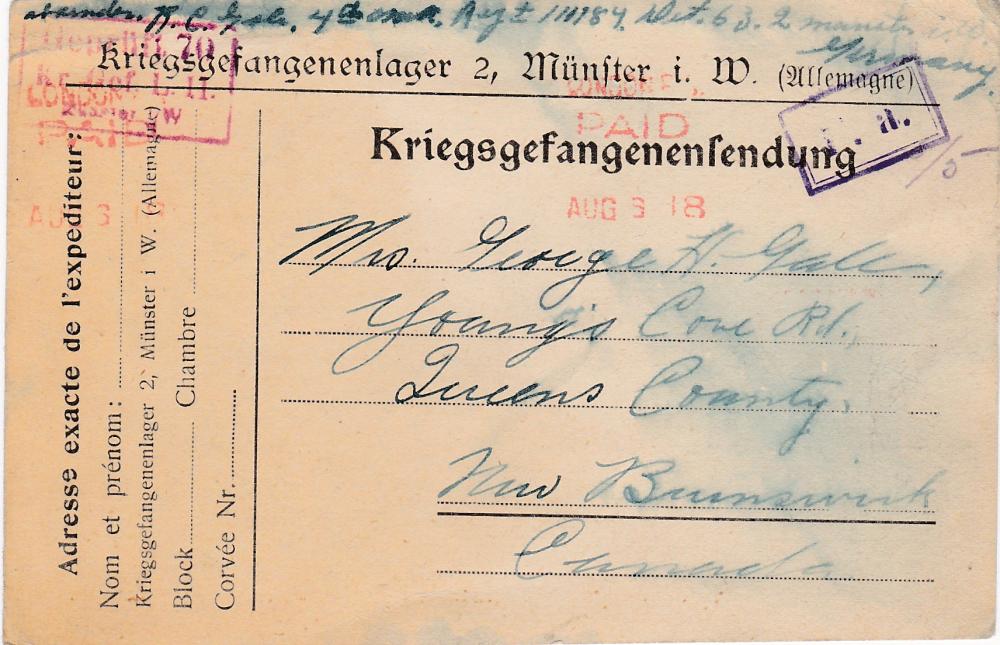 R. C. Gale. 4th Regt 111184. Det. 63. 2
Germany.
Kriegsgefangenenlager 2, Münſter i. W. (Allemagne)
Geprüft. 70
LONDON
PAID
AUG 3 18
PAID
Kriegsgefangenenſendung
AUG 3 18
Mrs. George H. Gale,
Young's Cove Rd.,
Queens County,
New Brunswick
Canada
Adresse exacte de l'expediteur:
Nom et prénom:
Kriegsgefangenenlager 2, Münster i W. (Allemagne)
Block Chambre
Corvée Nr.